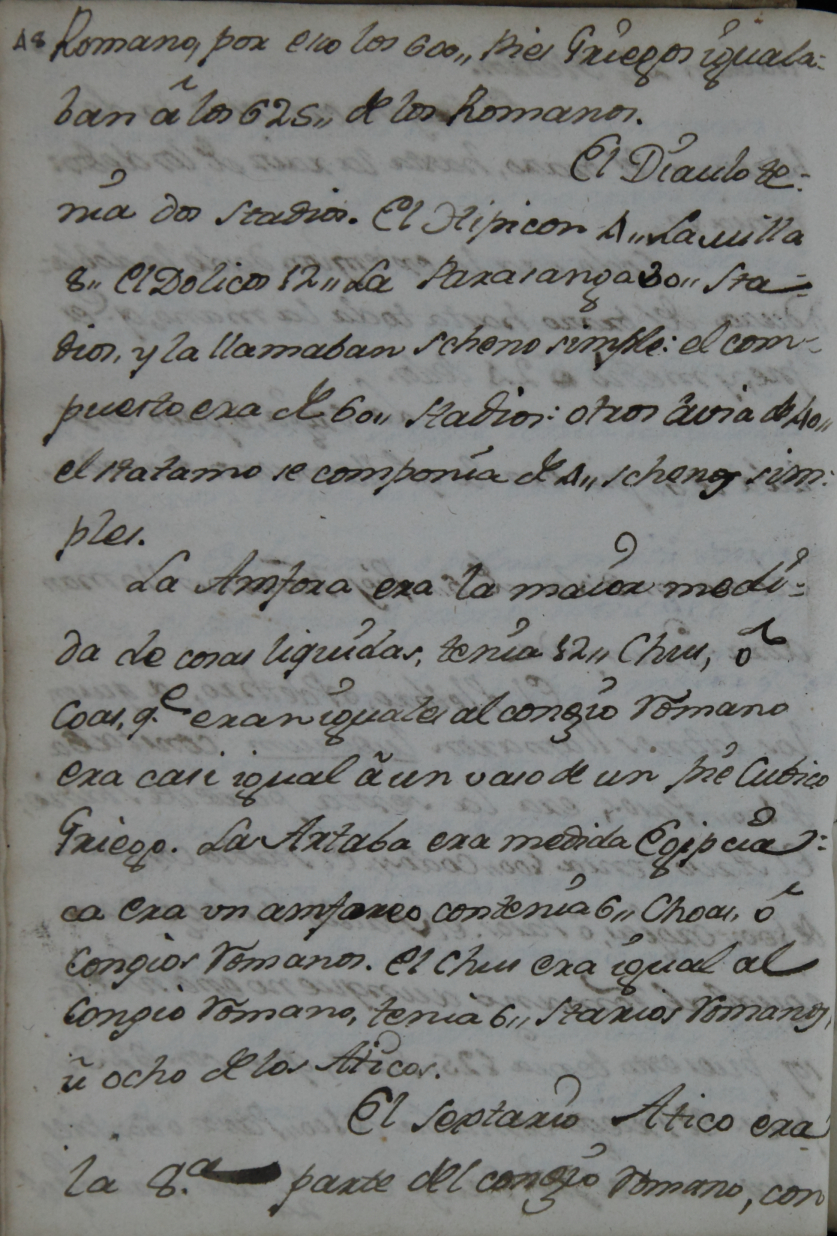 48 Romano, por eso los 600,, pies Griegos iguala-
ban â los 625,, de los Romanos.
El Diaulo te-
nia dos stadios. El Hipicon 4,, La milla
8,, El Dolicos 12,, La Parasanga 30,, Sta-
dios, y la llamaban scheno simple: el com-
puesto era de 60,, stadios: otros de 40,,
el statamo se componia de 4,, schenos sim-
ples.
La Amfora era la maior medi-
da de cosas liquidas, tenia 12,, Chus, ô
Coas, q.e eran iguales al congio Romano
era casi igual â un vaso de un pie Cubico
Griego. La Artaba era medida Egipcia-
ca era vn amforeo contenia 6,, Choas, ô
Congios Romanos. El Chus era igual al
Congio Romano, tenia 6,, Starios Romanos,
û ocho de los Aticos.
El sextario Atico era
la 8.a parte del congio Romano, con